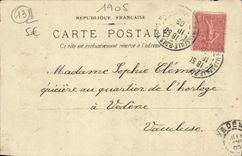 1905
13
5€
RÉPUBLIQUE FRANÇAISE
CARTE POSTALE
Ce côté est exclusivement réservé à l'adresse
Madame Sophie Clément
épicière au quartier de l'horloge
à Vedène
Vaucluse